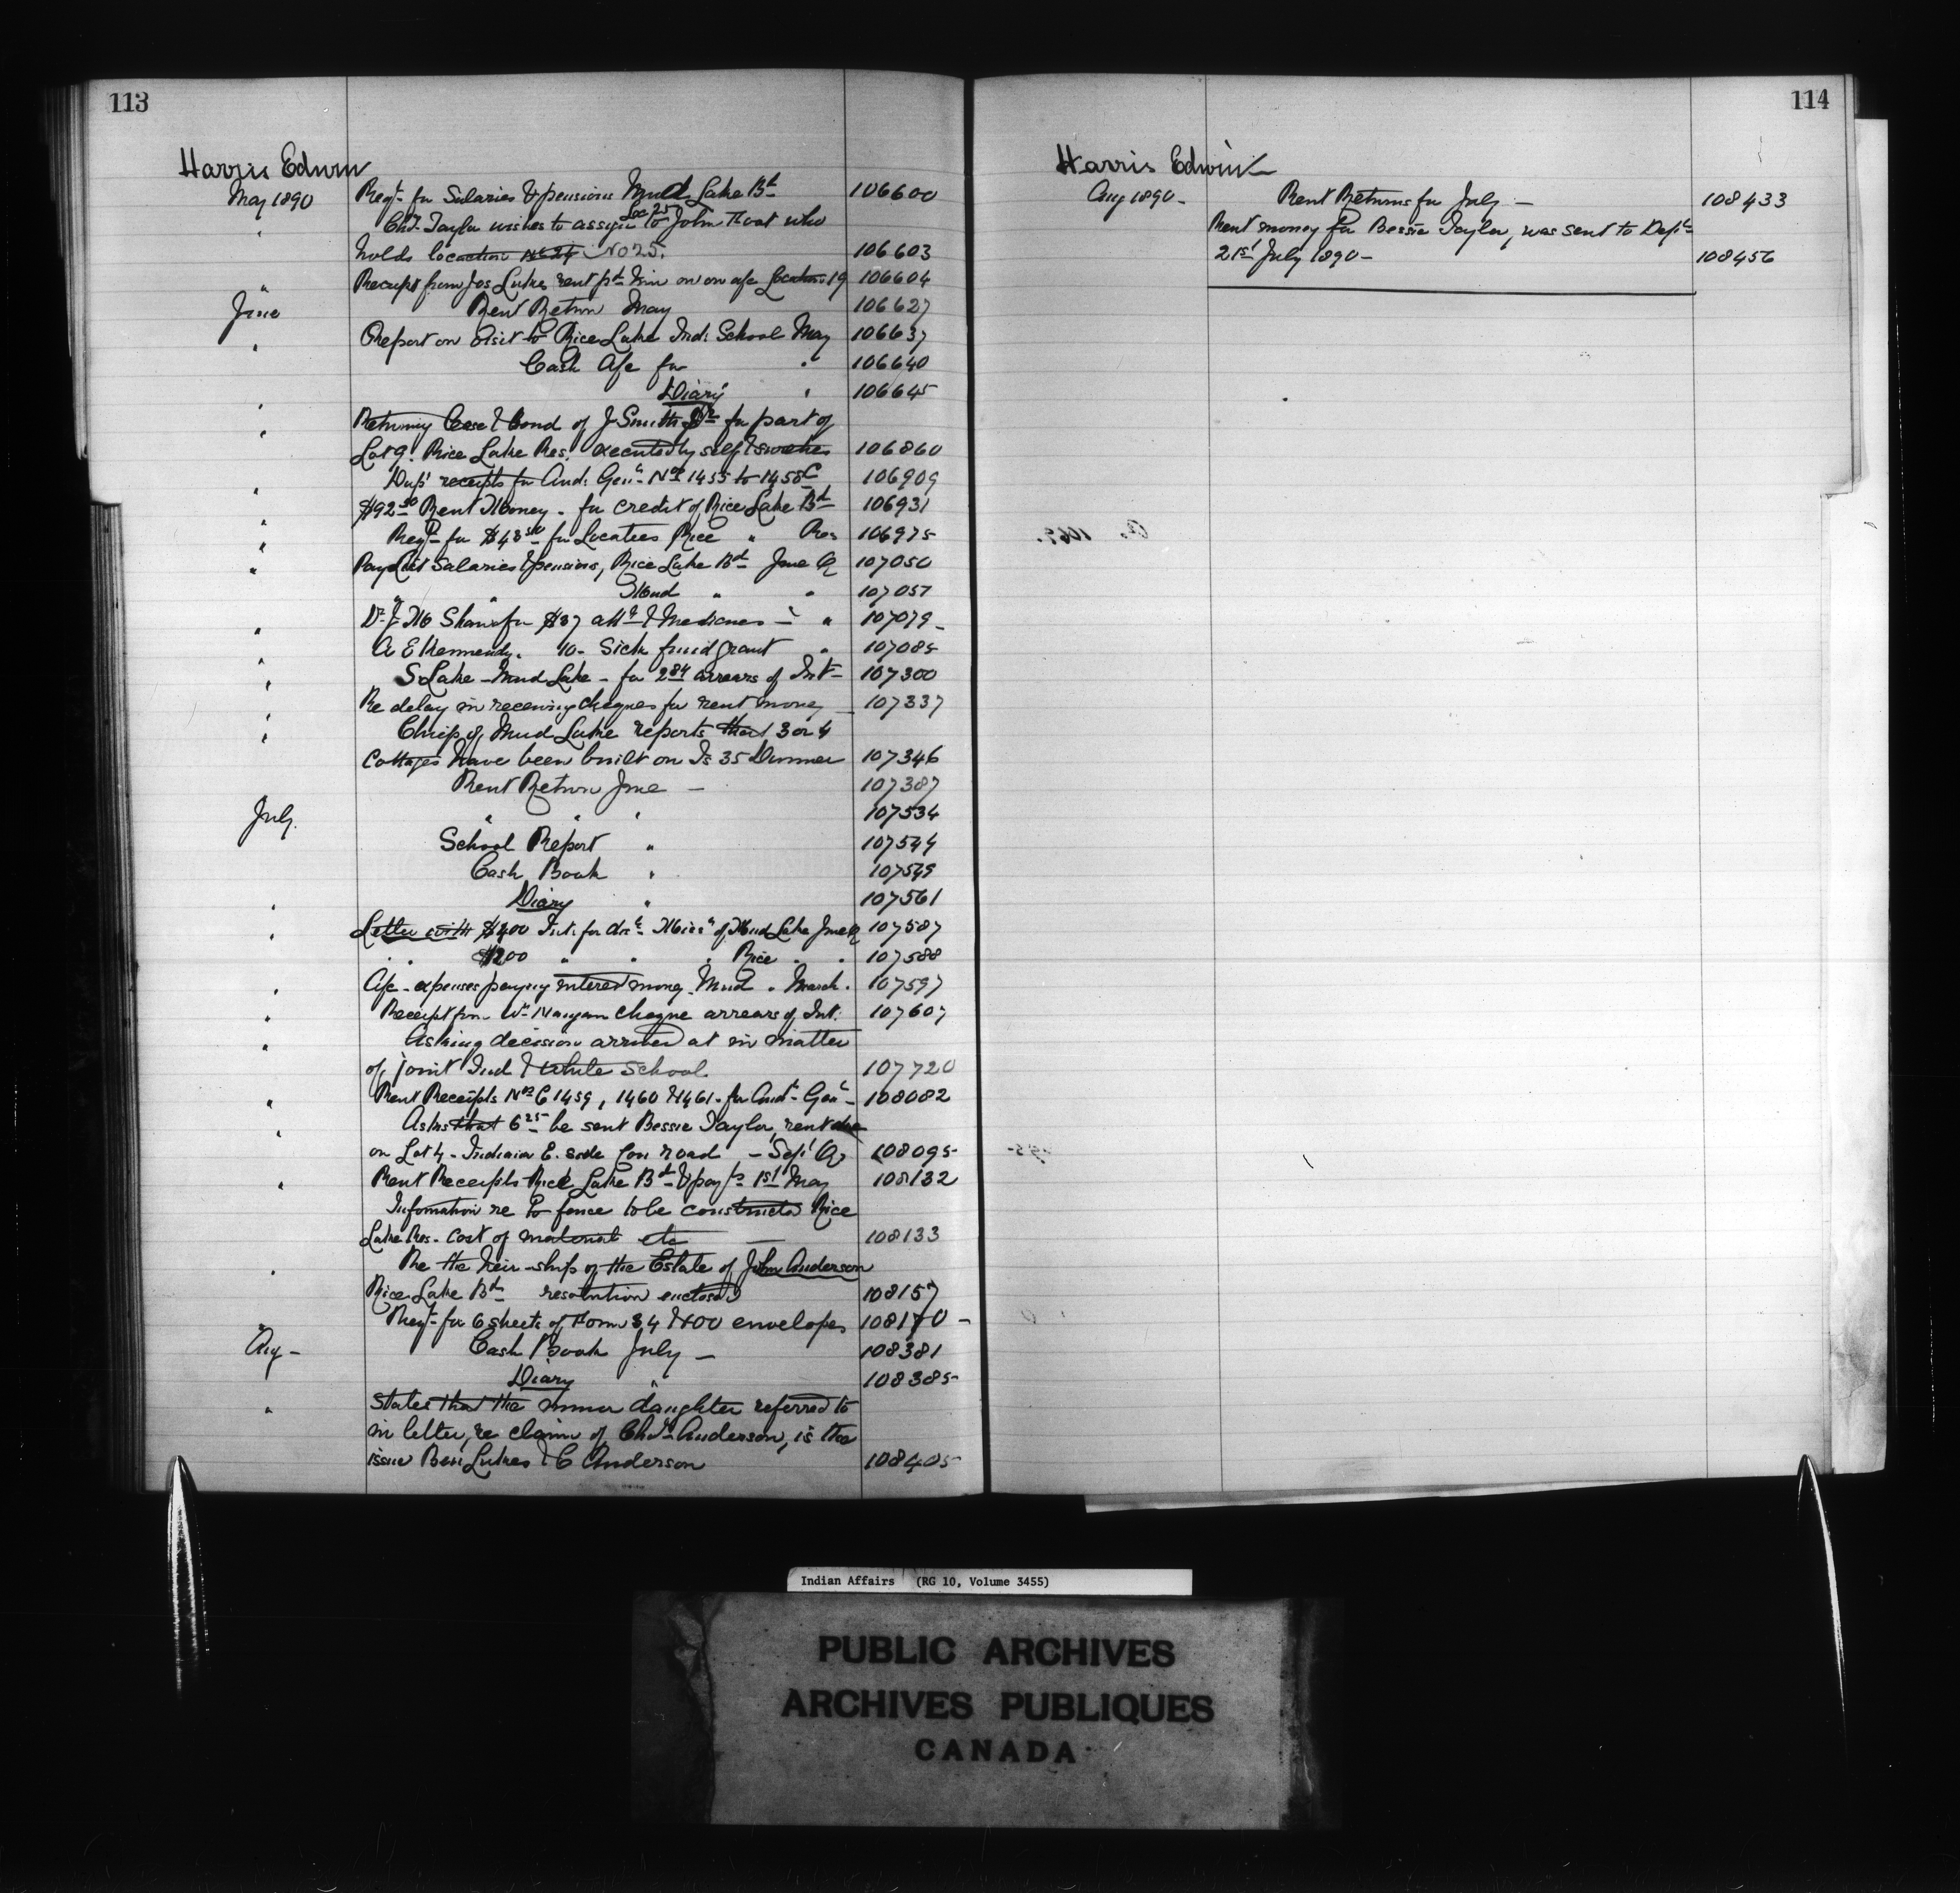 113
Harris Edwin
May 1890 Reqn. for Salaries & pensions Mud Lake Bd 106600
" Chs. Taylor wishes to assign Loc 25 to John Thoat who
holds location No 24 No 25. 106603
" Receipt from Jos Lukes rent pd him on on a/c Location 19 106604
June Rent Return May 106627
" Report on Visit to Rice Lake Ind: School May 106637
Cash A/c for " 106640
" Diary " 106645
" Returning lease & bond of J Smith Jr for part of
Lot 9. Rice Lake Res. executed by self & 106860
" Dup' receipts for Aud: Gen'l Nos 1455 to 1458 C 106909
" $92.50 Rent Money - for credit of Rice Lake Bd 106931
" Reqn for $43.50 for Locatees Rice " Res 106975
" Pay List Salaries & pensions, Rice Lake Bd June Q 107050
" " Mud " " 107057
" Dr J. McShaw for $37 attce & Medicines - " " 107079 -
" A E Kennedy. 10- Sick fund grant " 107085
" S. Lake - Mud Lake - for 2.84 arrears of Int- 107300
" Re delay in receiving cheques for rent money - 107337
" Chief of Mud Lake reports that 3 or 4
cottages have been built on Is 35 Dummer 107346
Rent Return June - 107387
July. " " " 107534
School Report " 107544
Cash Book " 107549
" Diary " 107561
" Letter with $400 Int. for of Mud Lake June Q 107587
" " $200 " " " Rice " " 107588
" A/c - expenses paying interest money. Mud " March " 107597
" Receipt from Wm cheque arrears of Int. 107607
" Asking decision arrived at in matter
of joint Ind & White school 107720
" Rent Receipts Nos C 1459, 1460 & 1461 - for Aud- Gen'l - 108082
" Asks that 6.25 be sent Bessie Taylor, rent due
on Lot 4 - Indiana E. side Con road - Sept Q 108095
" Rent Receipts Rice Lake Bd & 1st May 108132
Information re to fence to be constructed Rice
Lake Res - Cost of material etc - 108133
" Re the heir-ship of the Estate of John Anderson
Rice Lake Bd resolution enclosed 108157
" Reqn - for 6 sheets of Form 34 & 100 envelopes 108170 -
Aug - Cash Book July - 108381
Diary " 108385
" States that the minor daughter referred to
in letter, re claim of Chs. Anderson, is the
issue Ben Lukes & C Anderson 108405
114
Harris Edwin
Aug 1890 - Rent Returns for July - 108433
Rent money for Bessie Taylor, was sent to Dept
21st July 1890 - 108456
Indian Affairs (RG 10, Volume 3455)
PUBLIC ARCHIVES
ARCHIVES PUBLIQUES
CANADA